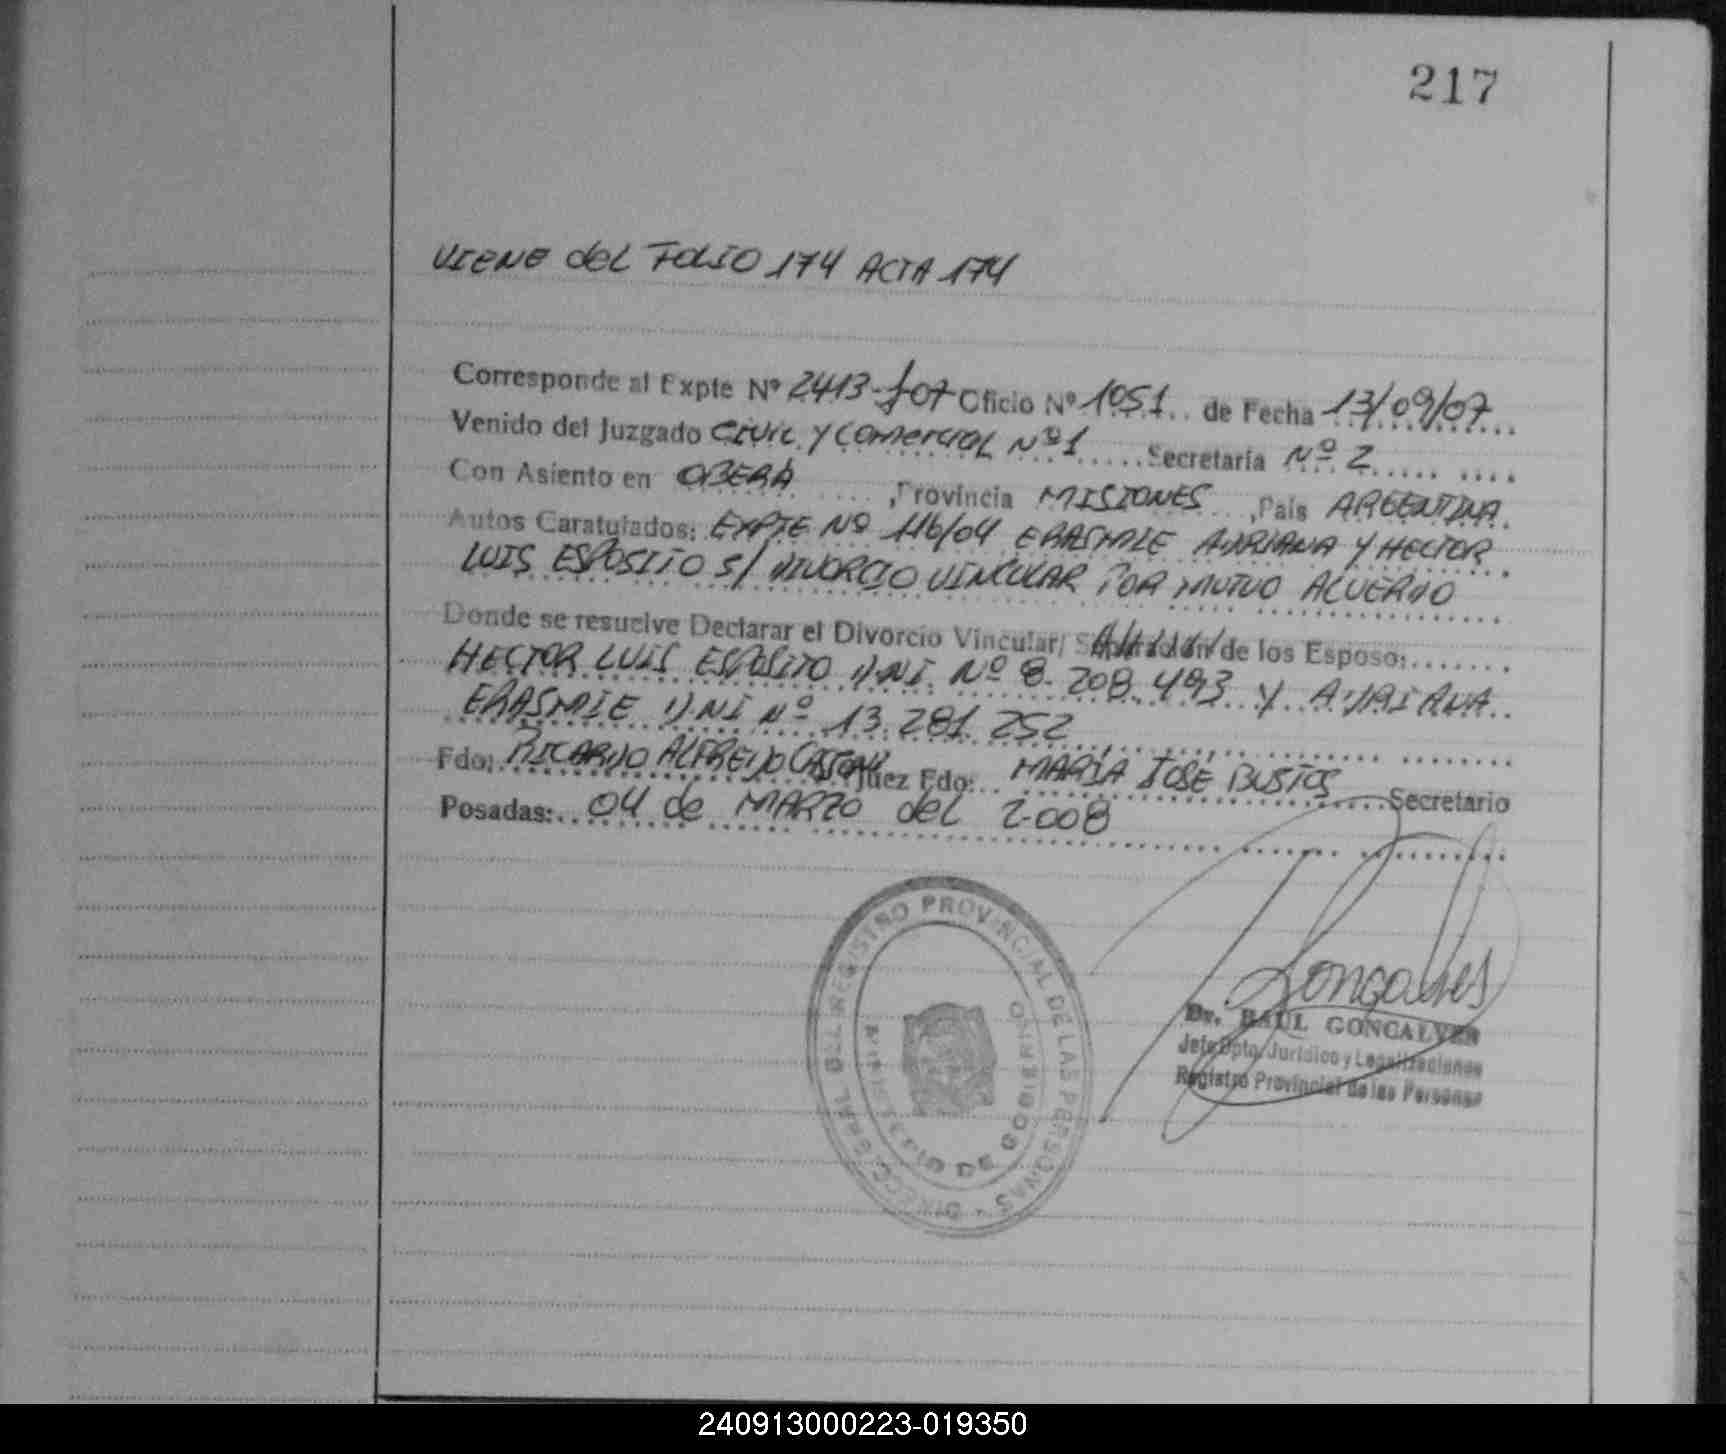 217
VIENE del FOLIO 174 ACTA 174
Corresponde al Expte Nº 2413-J-07 Oficio Nº 1051.. de Fecha 13/09/07
Venido del Juzgado CIVIL Y COMERCIAL Nº 1 ..... Secretaría Nº 2
Con Asiento en OBERÁ ....,Provincia MISIONES ..,País ARGENTINA.
Autos Caratulados: EXPTE Nº 116/04 ERASMIE ADRIANA Y HECTOR
LUIS ESPOSITO S/ DIVORCIO VINCULAR POR MUTUO ACUERDO
Donde se resuelve Declarar el Divorcio Vincular/ Separación de los Esposo:.......
HECTOR LUIS ESPOSITO D.NI. Nº 8.208.493 Y ADRIANA
ERASMIE D.NI Nº 13.281.252
Fdo: RICARDO ALFREDO Juez Fdo: MARÍA JOSÉ BUSTOS Secretario
Posadas: 04 de MARZO del 2.008
DIRECC. GRAL DEL REGISTRO PROVINCIAL DE LAS PERSONAS -
MINISTERIO DE GOBIERNO
Goncalves
Dr. RAUL GONCALVES
Jefe Dpto. Jurídico y Legalizaciones
Registro Provincial de las Personas
240913000223-019350